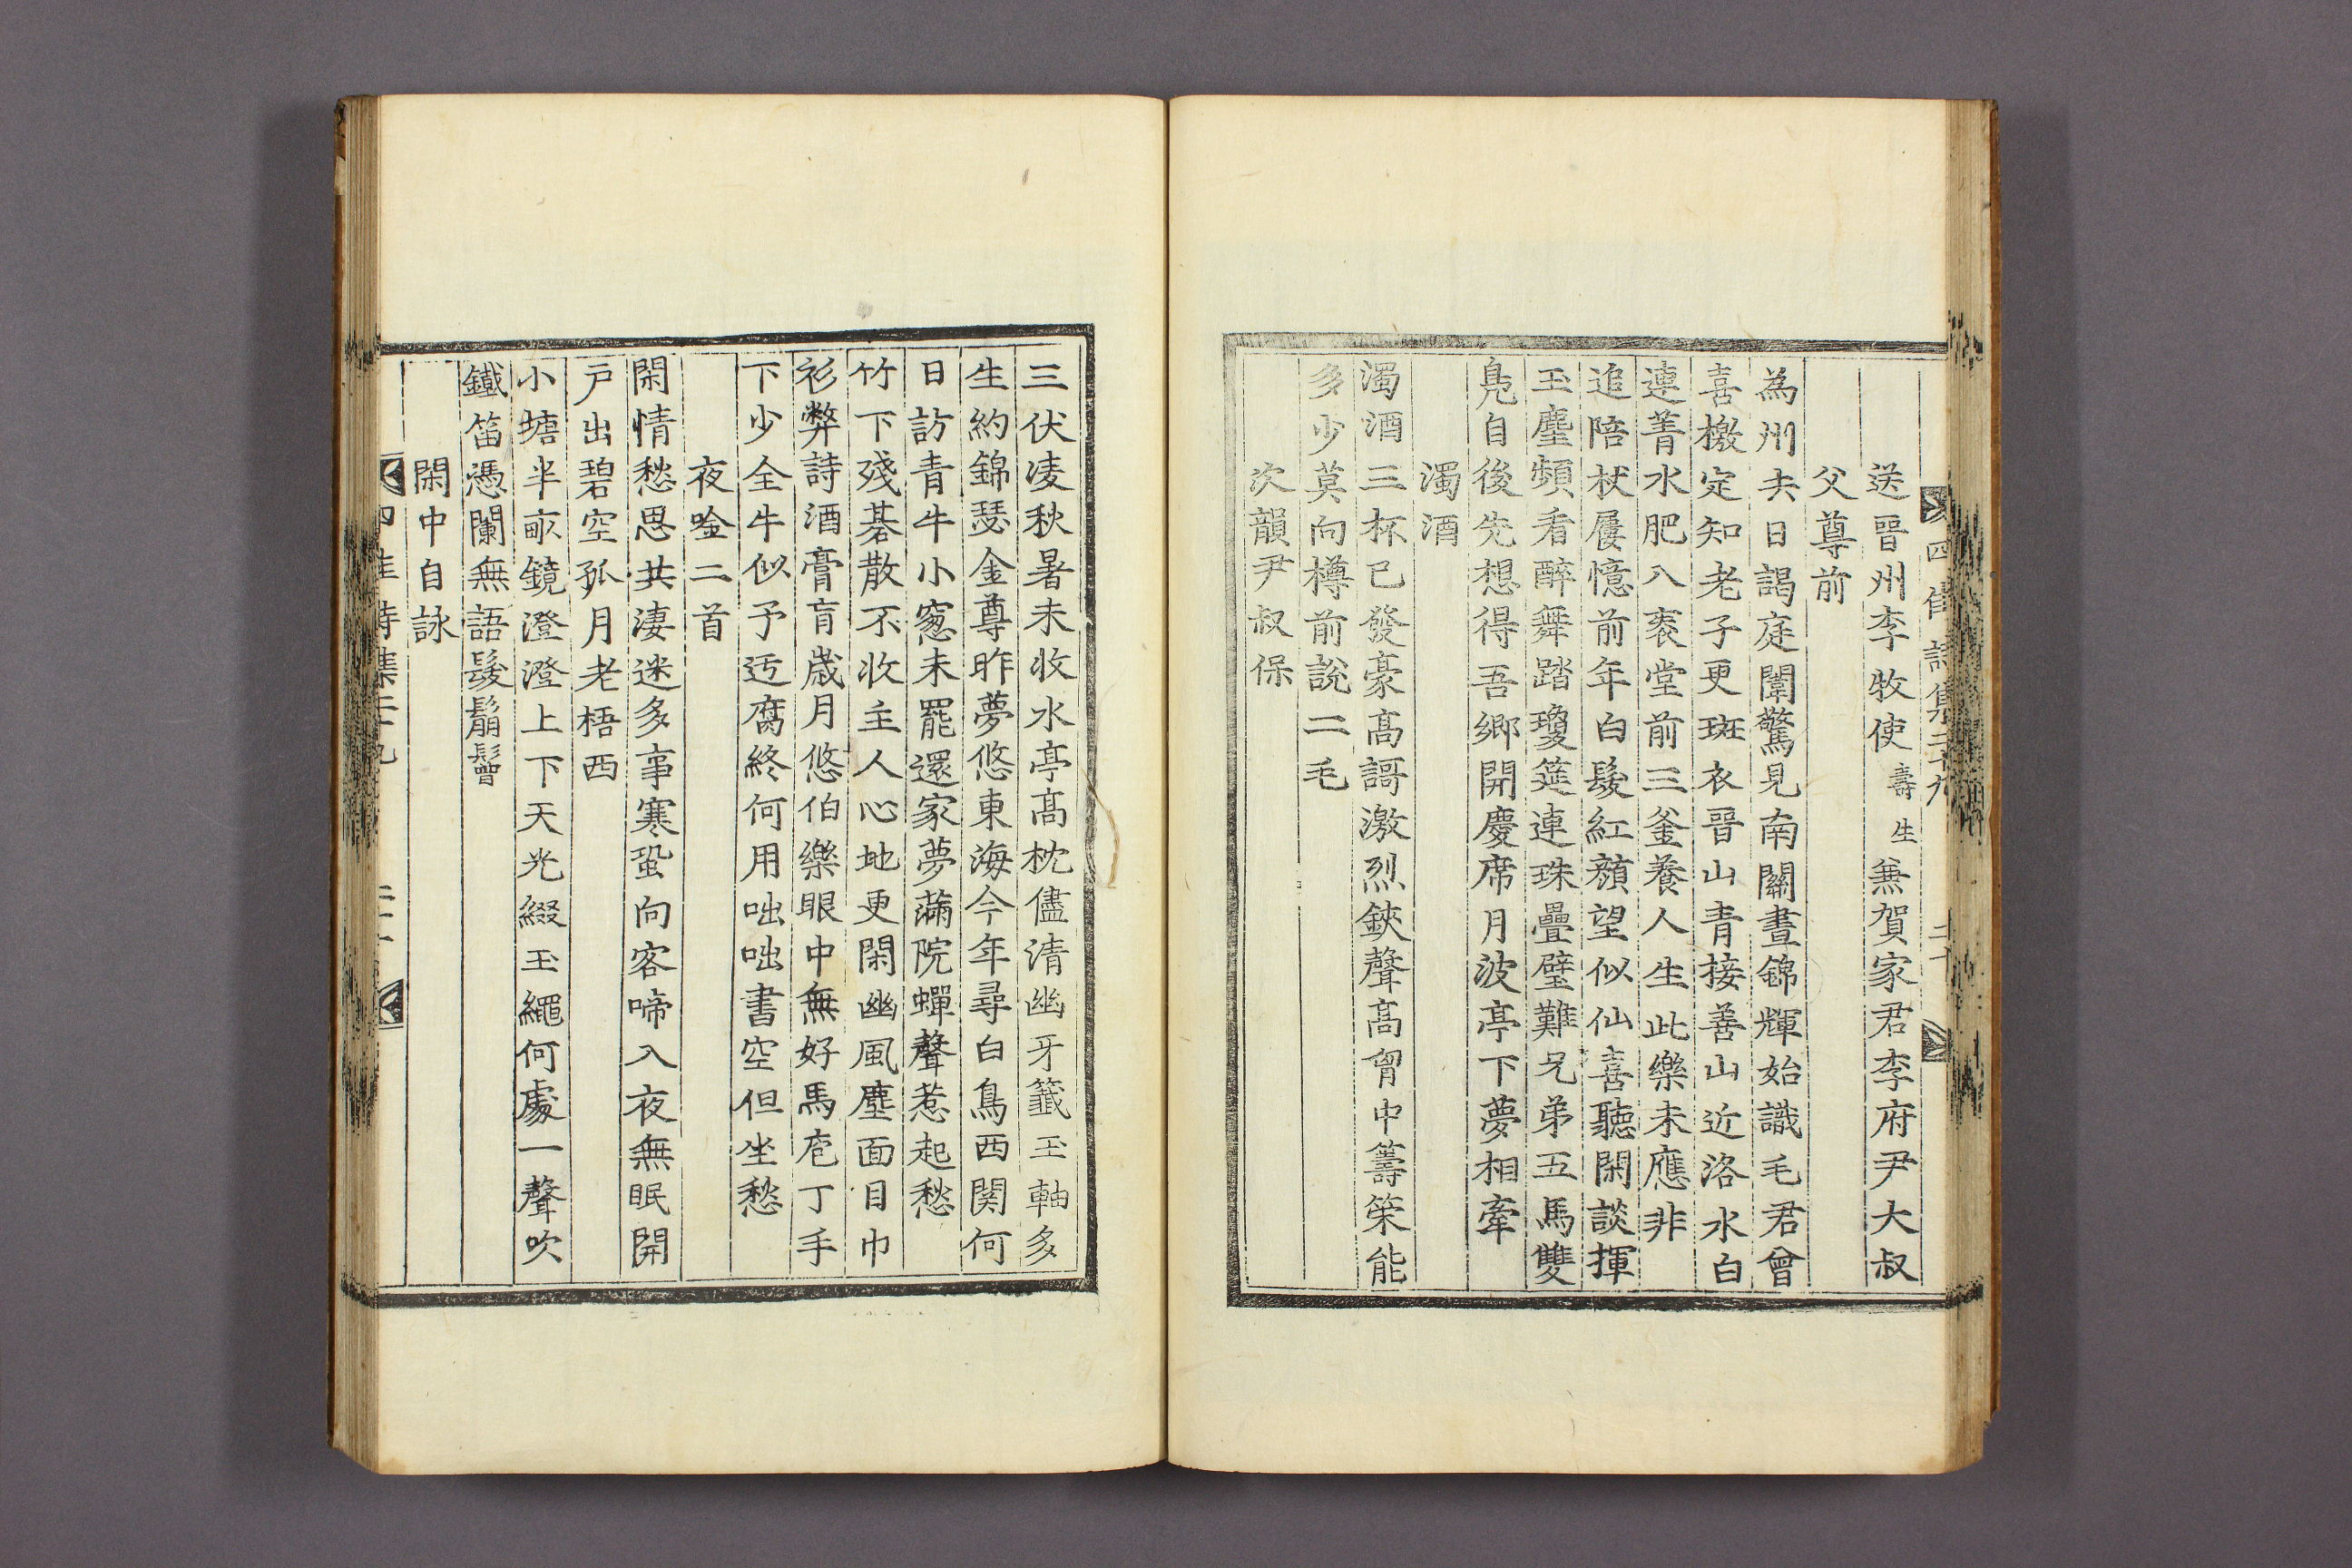 四佳詩集二十九 二十
送晉州李牧使壽生兼賀家君李府尹大叔
父尊前
為州去日謁庭闈驚見南關晝錦輝始識毛君曾
喜檄定知老子更斑衣晉山青接善山近洛水白
連菁水肥八袠堂前三釜養人生此樂未應非
追陪杖屨憶前年白髮紅顏望似仙喜聽閑談揮
玉麈頻看醉舞踏瓊筵連珠疊璧難兄弟五馬雙
鳧自後先想得吾鄉開慶席月波亭下夢相牽
濁酒
濁酒三杯已發豪高謌激烈鋏聲高胷中籌策能
多少莫向樽前說二毛
次韻尹叔保
三伏凌秋暑未收水亭高枕儘清幽牙籤玉軸多
生約錦瑟金尊昨夢悠東海今年尋白鳥西関何
日訪青牛小窓未罷還家夢滿院蟬聲惹起愁
竹下殘碁散不收主人心地更閑幽風塵面目巾
衫弊詩酒膏肓歲月悠伯樂眼中無好馬庖丁手
下少全牛似予迂腐終何用咄咄書空但坐愁
夜唫二首
閑情愁思共淒迷多事寒蛩向客啼入夜無眠開
戶出碧空孤月老梧西
小塘半畝鏡澄澄上下天光綴玉繩何處一聲吹
鐵笛憑闌無語髮鬅鬙
閑中自詠
四佳詩集二十九